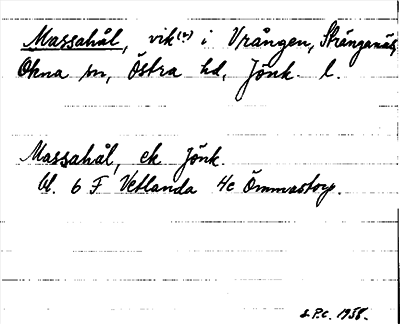 Massahål, vik(?) i Vrången, Stränganäs,
Ökna sn, Östra hd, Jönk. l.
Massahål, ek Jönk.
bl. 6 F Vetlanda 4c Ömmastorp.
1958.